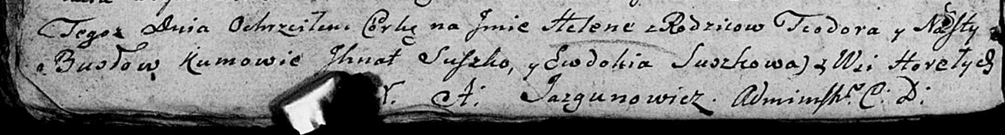 Tegoż Dnia Ochrzciłem Corkę na Jmie Helene z Rodzicow Teodora y Nasty
Busłow Kumowie Jhnat Suszko, y Ewdokia Suszkowa z Wsi Horełych
A: Jazgunowicz. Adminstr. C: D: